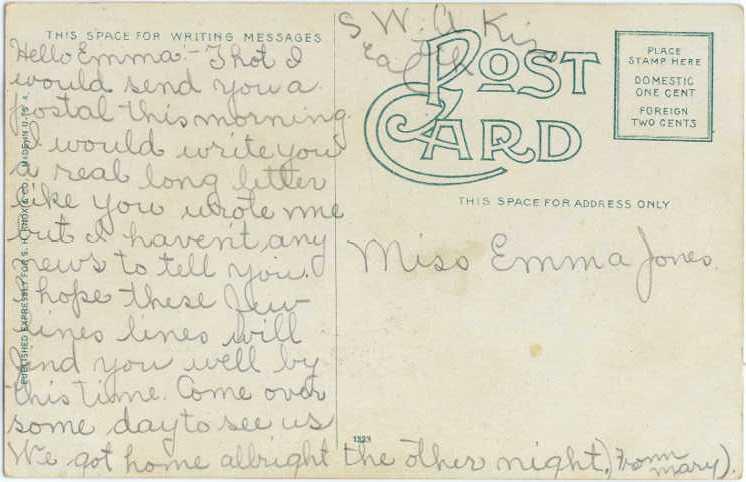 THIS SPACE FOR WRITING MESSAGES
Hello Emma:- Thot I
would send you a
postal this morning.
I would write you
a real long letter
like you wrote me
but I haven't any
news to tell you.
I hope these few
lines lines will
find you well by
this time. Come over
some day to see us
We got home allright the other night, From
Mary).
PUBLISHED EXPRESSLY FOR S. H. KNOX & CO. MADE IN U. S. A.
S W. A
POST
CARD
PLACE
STAMP HERE
DOMESTIC
ONE CENT
FOREIGN
TWO CENTS
THIS SPACE FOR ADDRESS ONLY
Miss Emma Jones.
1323